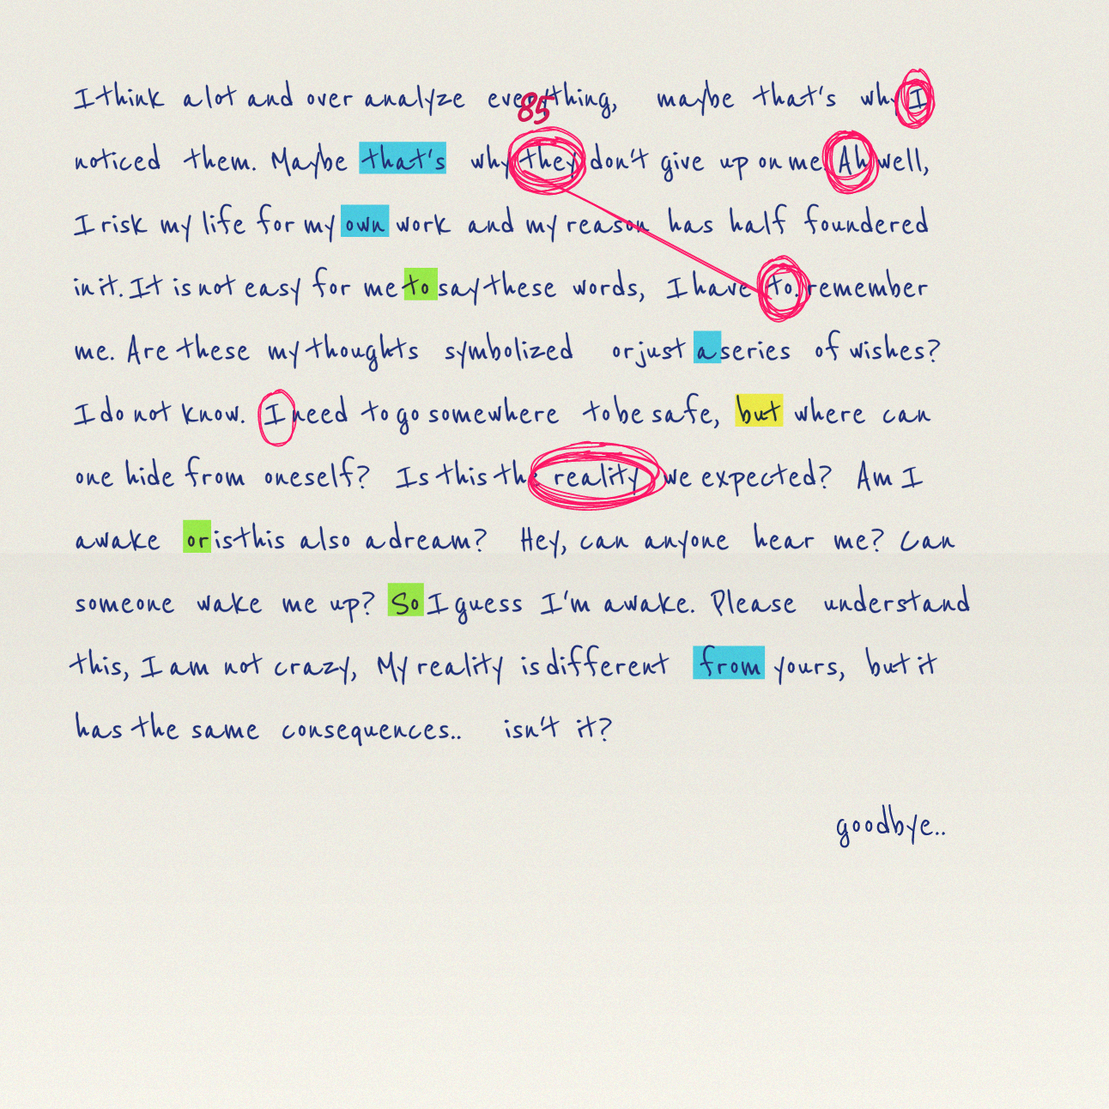 I think alot and over analyze everything, maybe that's why I
85
noticed them. Maybe that's why they don't give up on me. Ah well,
I risk my life for my own work and my reason has half foundered
in it. It is not easy for me to say these words, I have to. remember
me. Are these my thoughts symbolized or just a series of wishes?
I do not know. I need to go somewhere to be safe, but where can
one hide from oneself? Is this the reality we expected? Am I
awake or is this also a dream? Hey, can anyone hear me? Can
someone wake me up? So I guess I'm awake. Please understand
this, I am not crazy, My reality is different from yours, but it
has the same consequences.. isn't it?
goodbye..